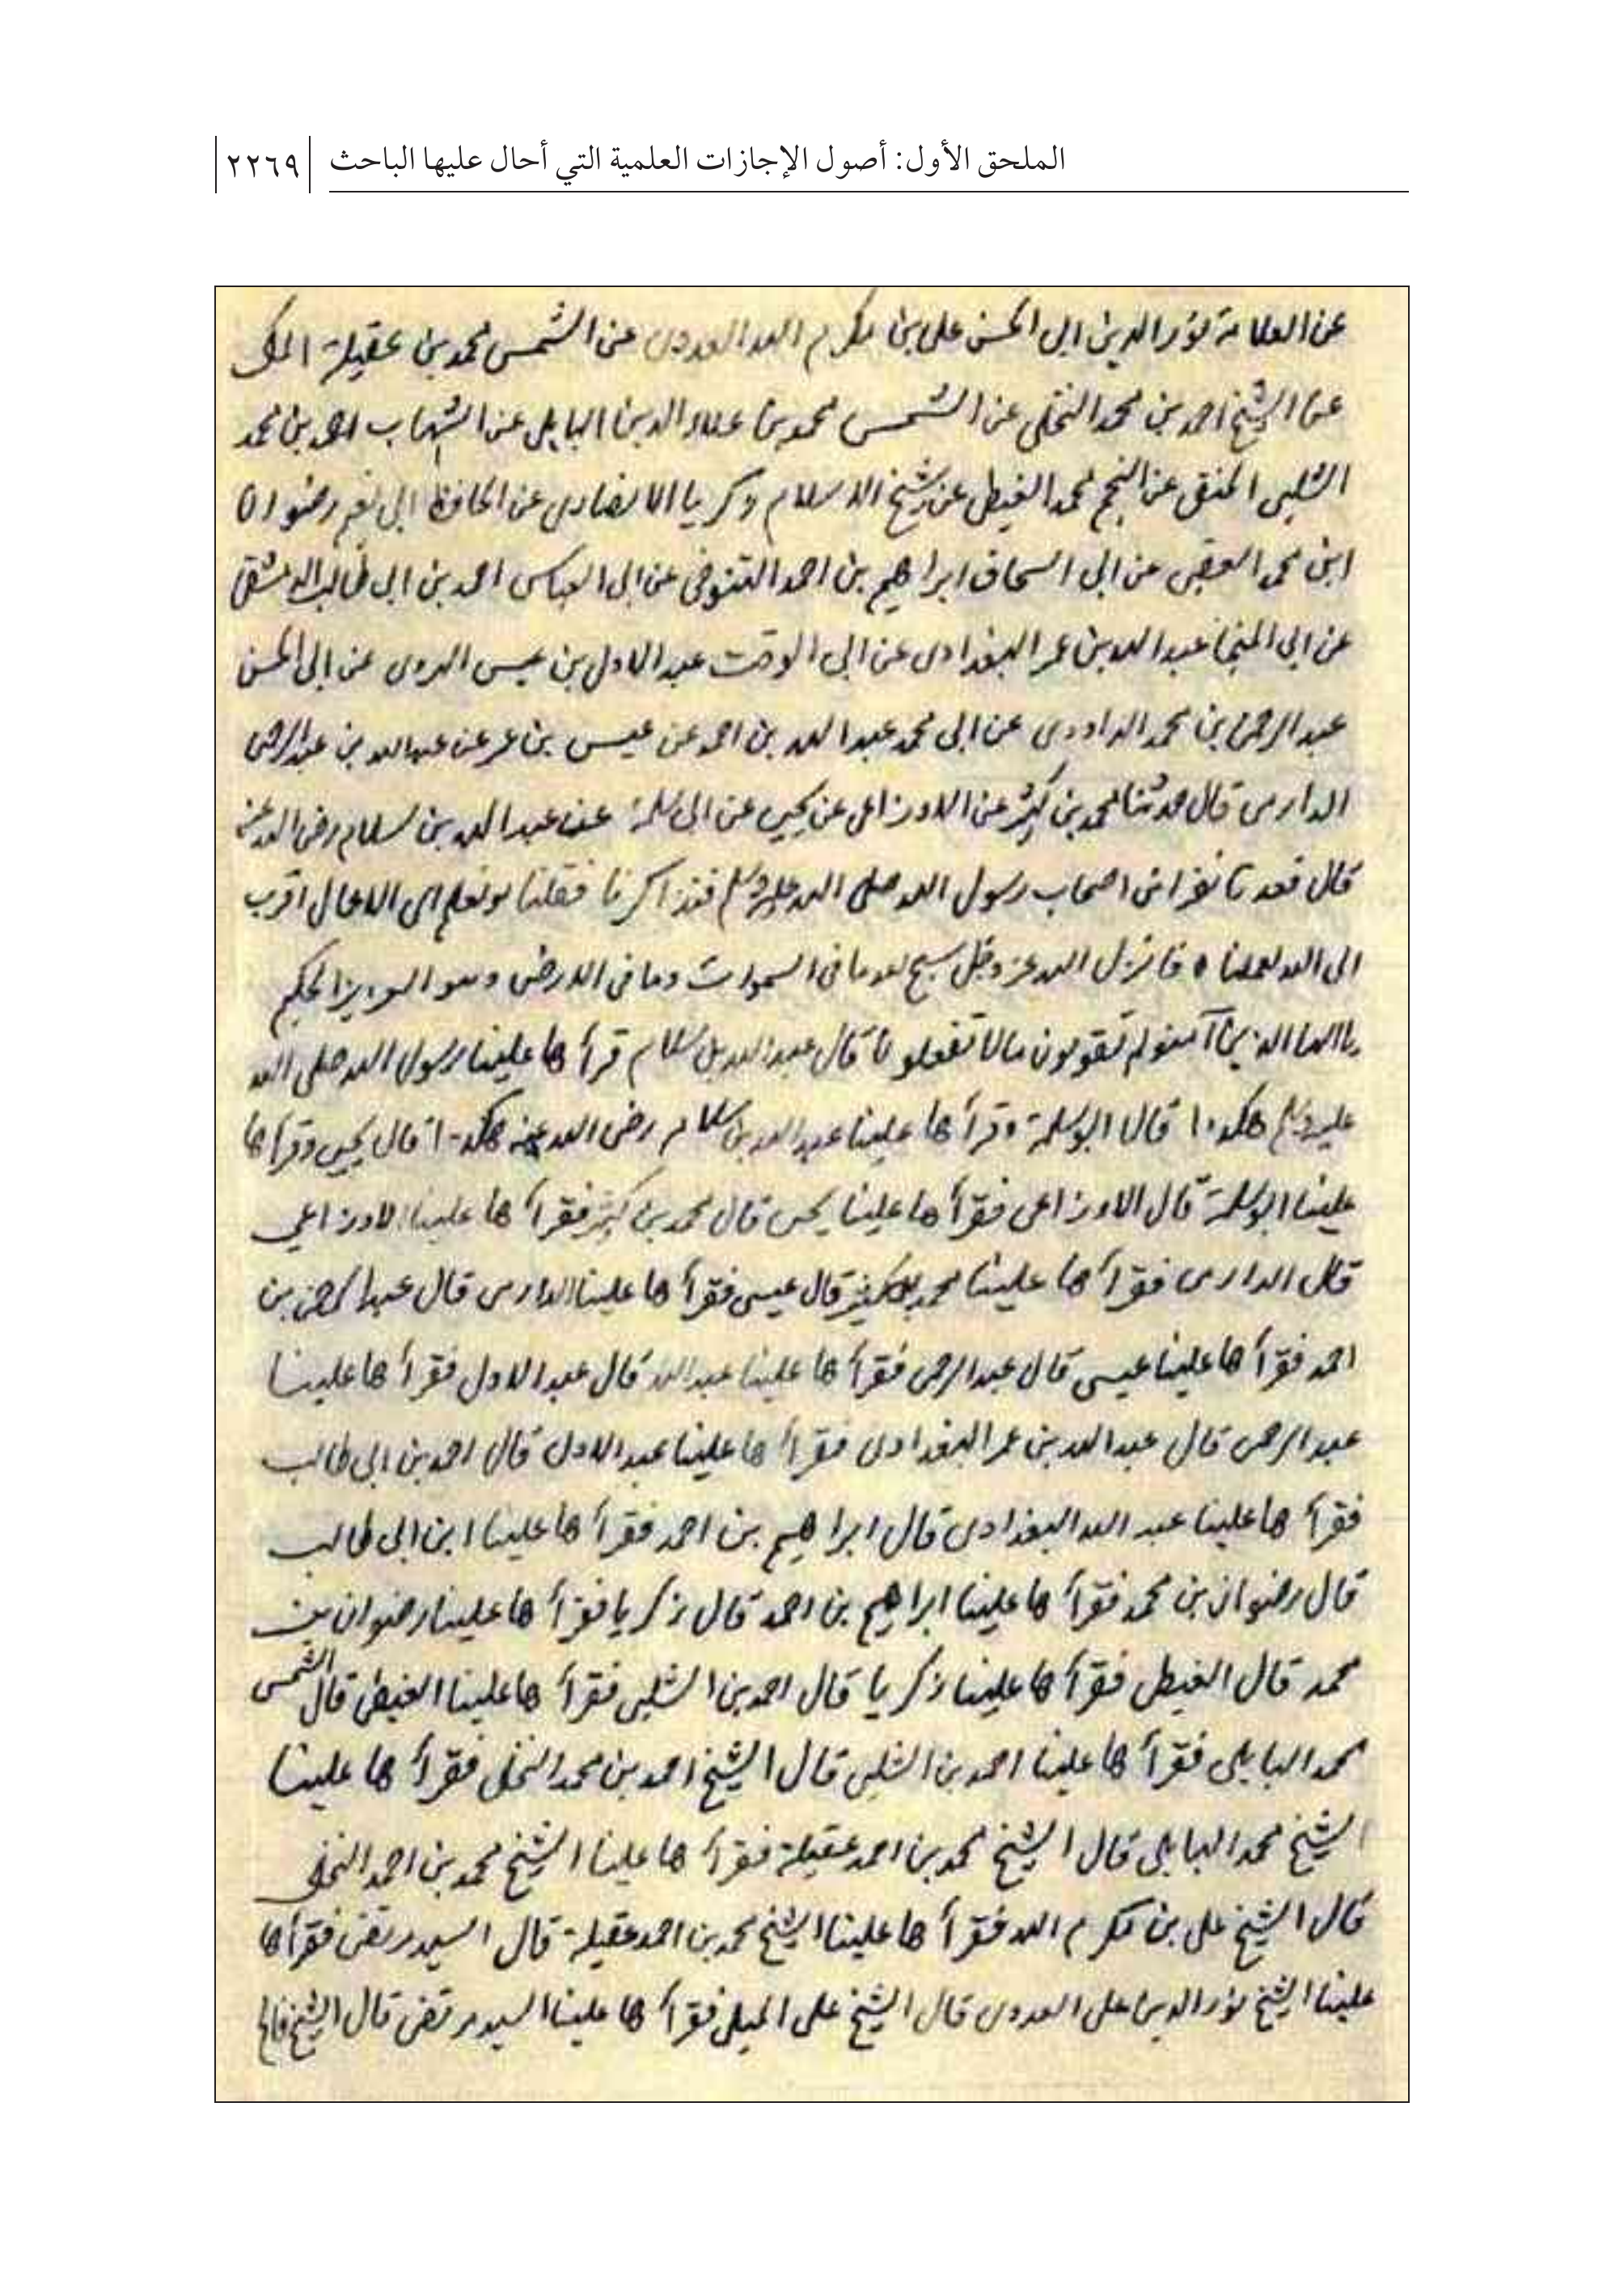 الملحق الأول: أصول الإجازات العلمية التي أحال عليها الباحث
٢٢٦٩
عن العلامة نور الدين ابي الحسن علي بن مكرم الله العدوي عن الشمس محمد بن عقيلة المكي
عن الشيخ احمد بن محمد النخلي عن الشمس محمد بن علاء الدين البابلي عن الشهاب احمد بن محمد
الشلبي الحنفي عن النجم محمد الغيطي عن شيخ الاسلام زكريا الانصاري عن الحافظ ابي نعيم رضوان
ابن محمد العقبي عن ابي اسحاق ابراهيم بن احمد التنوخي عن ابي العباس احمد بن ابي طالب الدمشقي
عن ابي المنجا عبد الله بن عمر البغدادي عن ابي الوقت عبد الاول بن عيسى الهروي عن ابي الحسن
عبد الرحمن بن محمد الداودي عن ابي محمد عبد الله بن احمد عن عيسى بن عمر عن عبد الله بن عبد الرحمن
الدارمي قال حدثنا محمد بن كثير عن الاوزاعي عن يحيى عن ابي سلمة عن عبد الله بن سلام رضي الله عنه
قال قعدنا نفر من اصحاب رسول الله صلى الله عليه وسلم فتذاكرنا فقلنا لو نعلم اي الاعمال اقرب
الى الله لعملناه فانزل الله عز وجل سبح لله ما في السموات وما في الارض وهو العزيز الحكيم
يا ايها الذين آمنوا لم تقولون مالا تفعلون قال عبد الله بن سلام قرأها علينا رسول الله صلى الله
عليه وسلم هكذا قال ابو سلمة وقرأها علينا عبد الله بن سلام رضي الله عنه هكذا قال يحيى وقرأها
علينا ابو سلمة قال الاوزاعي فقرأها علينا يحيى قال محمد بن كثير فقرأها علينا الاوزاعي
قال الدارمي فقرأها علينا محمد بن كثير قال عيسى فقرأها علينا الدارمي قال عبد الرحمن بن
احمد فقرأها علينا عيسى قال عبد الرحمن فقرأها علينا عبد الله قال عبد الاول فقرأها علينا
عبد الرحمن قال عبد الله بن عمر البغدادي فقرأها علينا عبد الاول قال احمد بن ابي طالب
فقرأها علينا عبد الله البغدادي قال ابراهيم بن احمد فقرأها علينا ابن ابي طالب
قال رضوان بن محمد فقرأها علينا ابراهيم بن احمد قال زكريا فقرأها علينا رضوان بن
محمد قال الغيطي فقرأها علينا زكريا قال احمد بن الشلبي فقرأها علينا الغيطي قال الشمس
محمد البابلي فقرأها علينا احمد بن الشلبي قال الشيخ احمد بن محمد النخلي فقرأها علينا
الشيخ محمد البابلي قال الشيخ محمد بن احمد عقيلة فقرأها علينا الشيخ محمد بن احمد النخلي
قال الشيخ علي بن مكرم الله فقرأها علينا الشيخ محمد بن احمد عقيلة قال السيد مرتضى فقرأها
علينا الشيخ نور الدين علي العدوي قال الشيخ علي الميلي فقرأها علينا السيد مرتضى قال الشيخ فالح